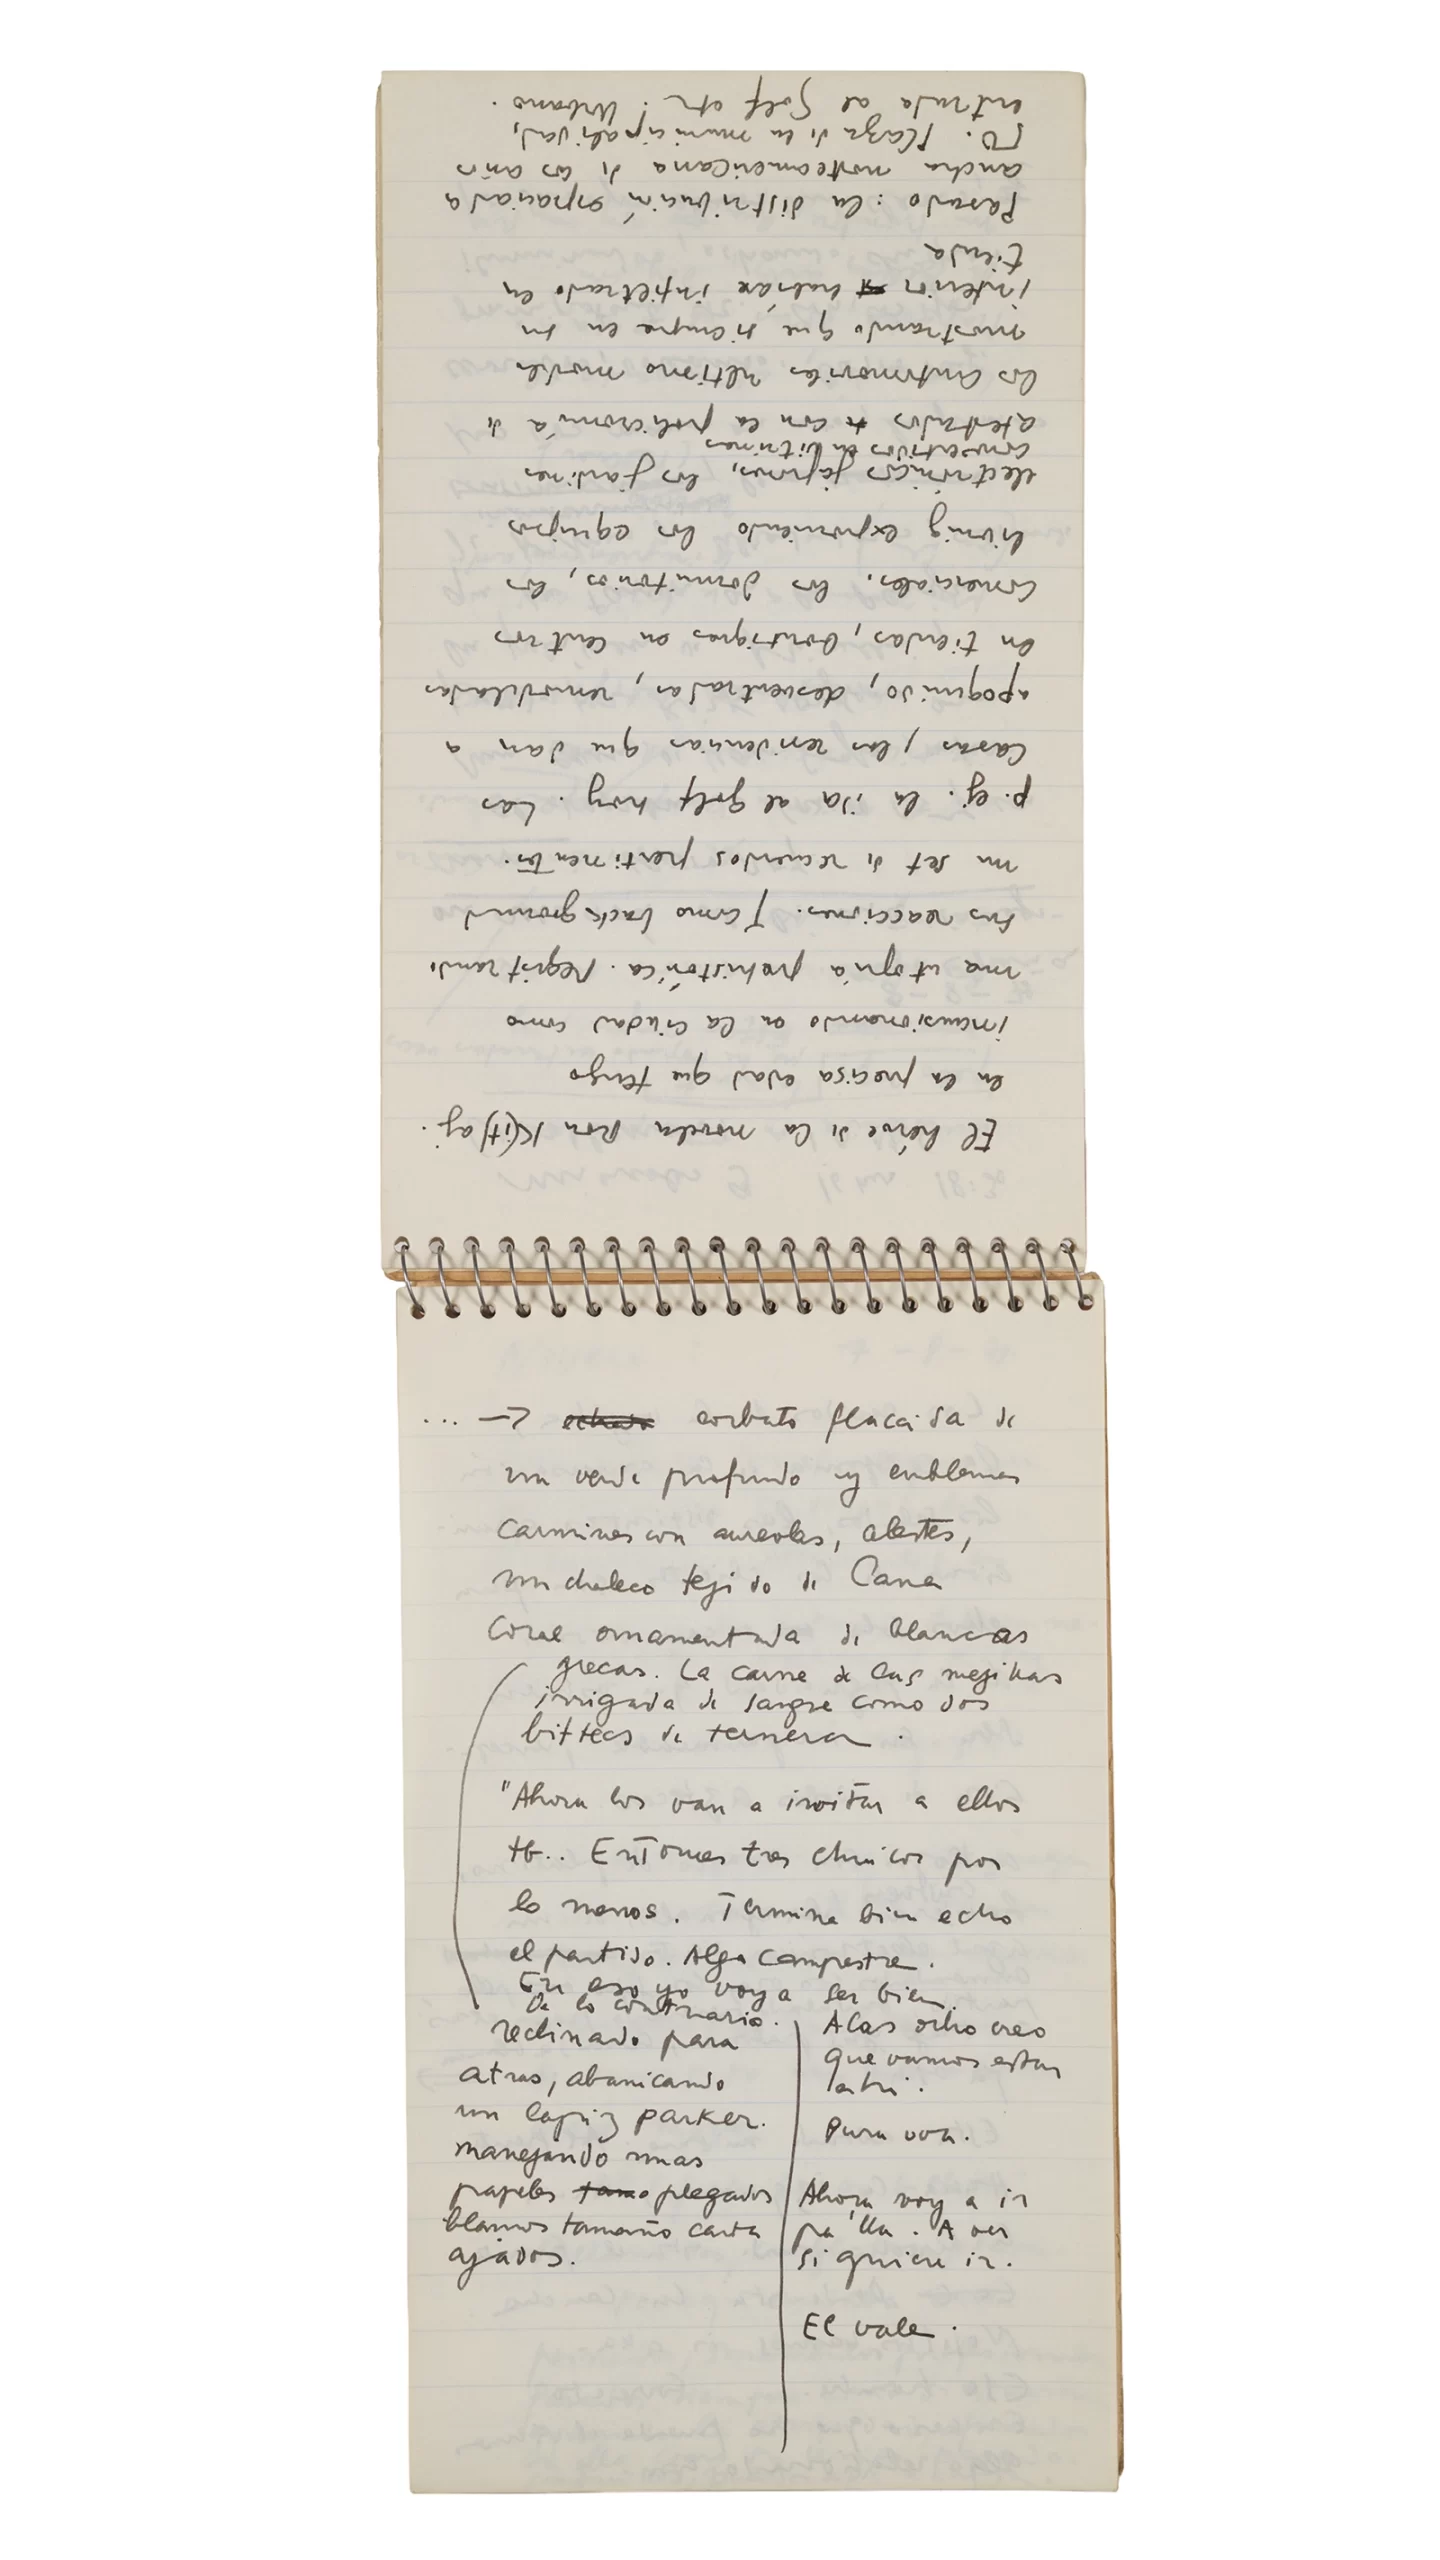 El héroe de la novela Ron K(it)aj.
en la precisa edad que tengo
incursionando en la ciudad como
una utopía prehistórica. Registrando
sus reacciones. Y como background
un set de recuerdos pertinentes.
p. ej. la ida al golf hoy. Las
casas, las residencias que dan a
apoquindo, desventradas, remodeladas
en tiendas, boutiques en centros
comerciales, los dormitorios, los
living exponiendo los equipos
electrónicos japones, los jardines
convertidos en vitrinas
atestados con la policromía de
los automoviles ultimo modelo
mostrando que siempre en su
interior habían infiltrado en
tienda
Pasado: la distribución espaciada
ancha norteamericana de los años
50. Plaza de la municipalidad,
entrada al Golf etc. Urbano.
... → corbata flaccida de
un verde profundo y emblemas
carmines con aureolas, celestes,
un chaleco tejido de Cana
coral ornamentada de blancas
grecas. La carne de las mejillas
irrigada de sangre como dos
bifteas de ternera.
"Ahora los van a invitar a ellos
tb.. Entonces tres chicos por
lo menos. Termina bien echo
el partido. Algo campestre.
En eso yo voy a ser bien.
De lo contrario.
reclinado para
atras, abanicando
un lapiz parker.
manejando unas
papeles plegados
blancos tamaño carta
ajados.
A las ocho creo
que vamos estar
Para ver.
Ahora voy a ir
pa'lla. A ver
si quiere ir.
El vale.